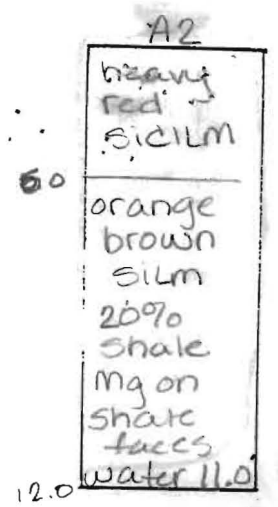 A2
heavy
red
SiClLM
5.0
orange
brown
SiLM
20%
Shale
Mg on
Shale
faces
water 11.0
12.0